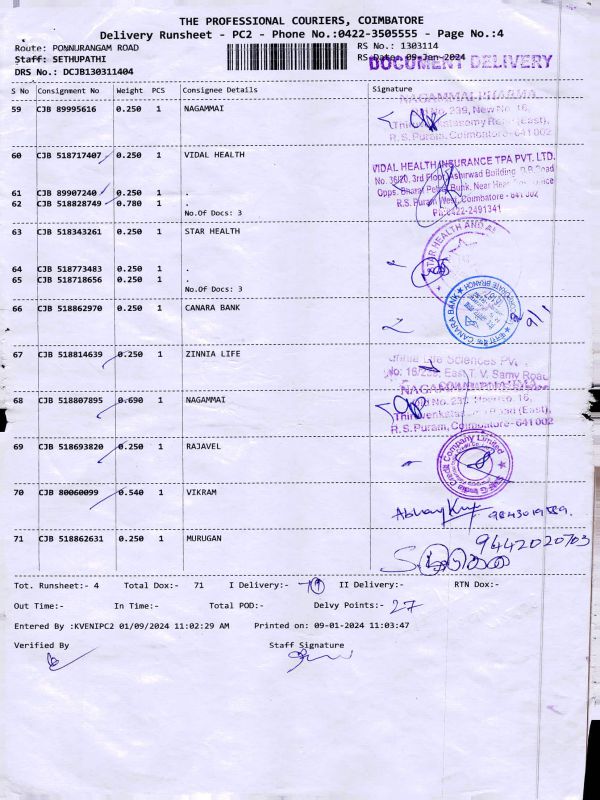 THE PROFESSIONAL COURIERS, COIMBATORE
Delivery Runsheet - PC2 - Phone No.:0422-3505555 - Page No.:4
Route: PONNURANGAM ROAD RS No.: 1303114
Staff: SETHUPATHI RS Date: 09-Jan-2024
DOCUMENT DELIVERY
DRS No.: DCJB130311404
S No Consignment No Weight PCS Consignee Details Signature
59 CJB 89995616 0.250 1 NAGAMMAI
NAGAMMAI PHARMA
No. 239, New No. 16,
R.S. Puram, Coimbatore- 641 002
60 CJB 518717407 0.250 1 VIDAL HEALTH
VIDAL HEALTH INSURANCE TPA PVT. LTD.
No. 36/20, 3rd Floor, Ashirwad Building, D.B.Road
Opps. Bharat Petrol Bunk, Near Head
R.S. Puram West, Coimbatore - 641 002
Ph:0422-2491341
61 CJB 89907240 0.250 1 .
62 CJB 518828749 0.780 1 .
No.Of Docs: 3
63 CJB 518343261 0.250 1 STAR HEALTH
STAR HEALTH AND
64 CJB 518773483 0.250 1 .
65 CJB 518718656 0.250 1 .
No.Of Docs: 3
66 CJB 518862970 0.250 1 CANARA BANK
CANARA BANK
CORPORATE BRANCH
9/1
67 CJB 518814639 0.250 1 ZINNIA LIFE
Life Sciences
East T. V. Samy Road
68 CJB 518807895 0.690 1 NAGAMMAI
NAGAMMAI PHARMA
R.S. Puram, Coimbatore- 641 002
69 CJB 518693820 0.250 1 RAJAVEL
Company Limited
70 CJB 80060099 0.540 1 VIKRAM
71 CJB 518862631 0.250 1 MURUGAN
9442020703
Tot. Runsheet:- 4 Total Dox:- 71 I Delivery:- II Delivery:- RTN Dox:-
Out Time:- In Time:- Total POD:- Delvy Points:- 27
Entered By :KVENIPC2 01/09/2024 11:02:29 AM Printed on: 09-01-2024 11:03:47
Verified By Staff Signature